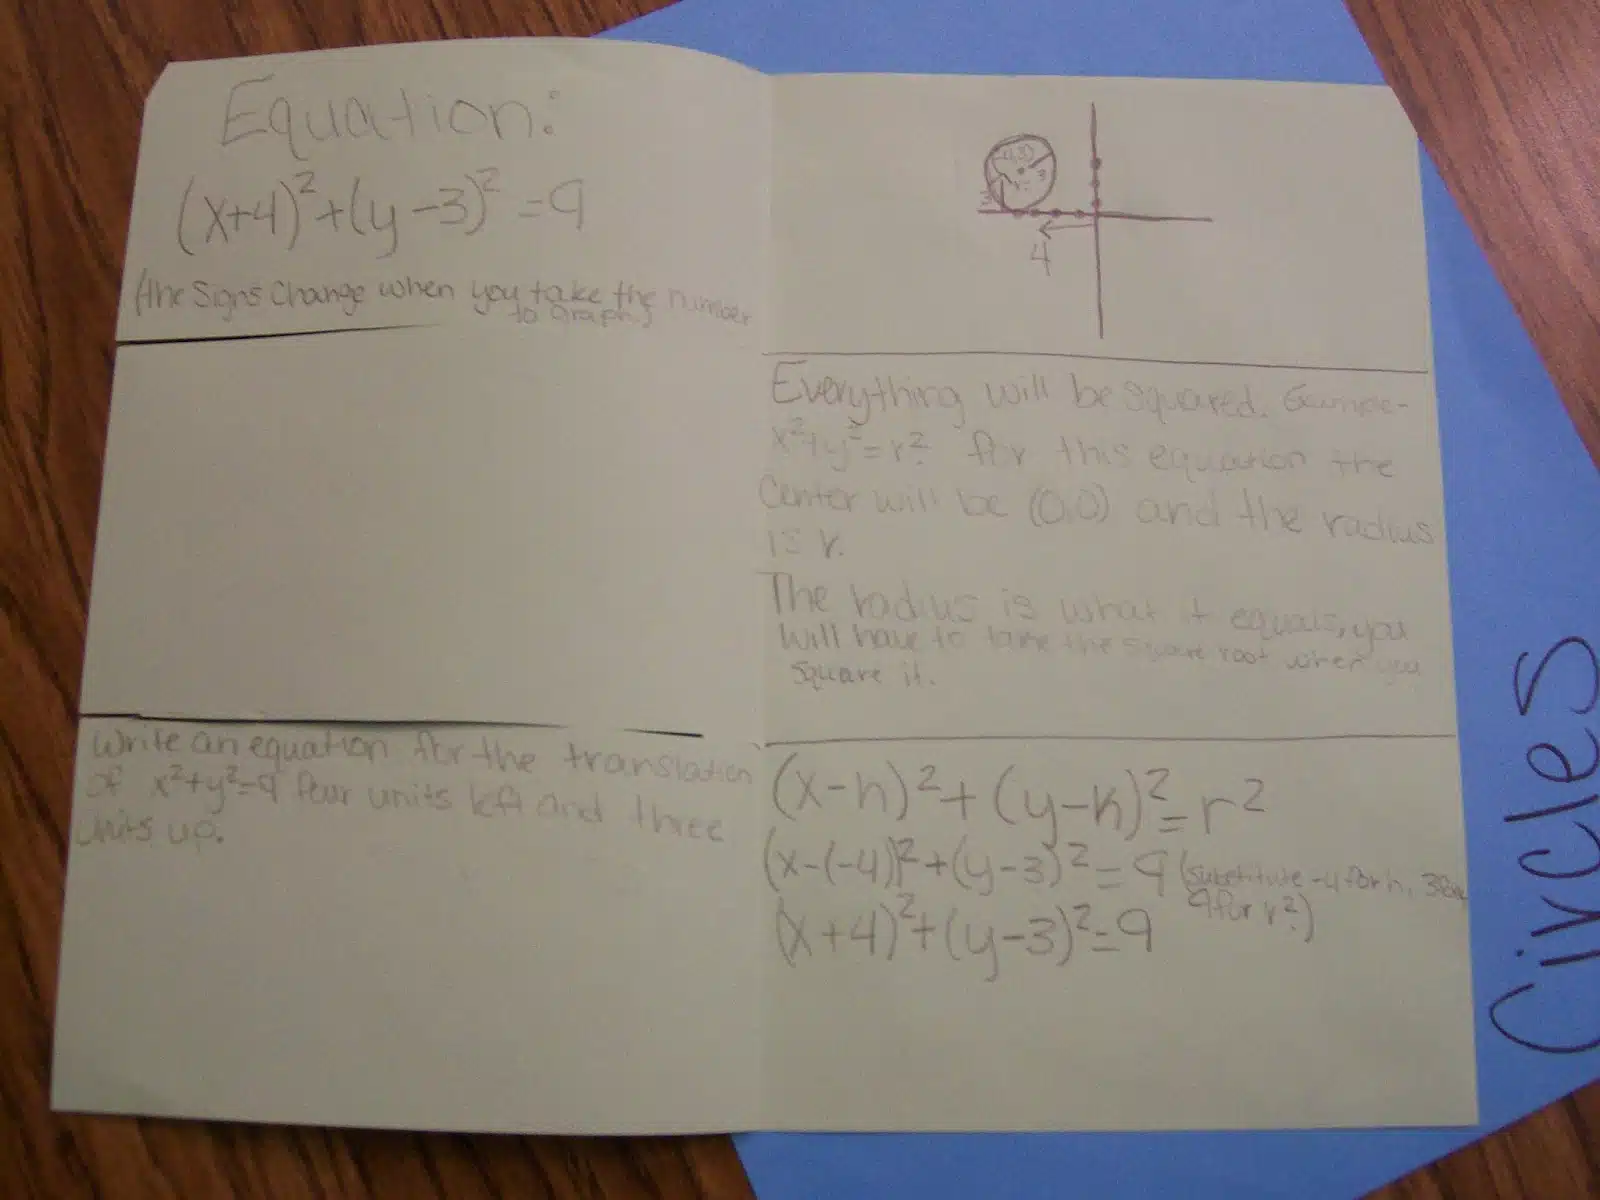 Equation:
(x+4)²+(y-3)²=9
(the signs change when you take the number
to graph.)
4
Everything will be squared. Example-
x²+y²=r². for this equation the
Center will be (0,0) and the radius
is r.
The radius is what it equals, you
will have to take the square root when you
square it.
Write an equation for the translation
of x²+y²=9 four units left and three
units up.
(x-h)²+(y-k)²=r²
(x-(-4))²+(y-3)²=9 (substitute -4 for h, 3 for
9 for r².)
(x+4)²+(y-3)²=9
Circles